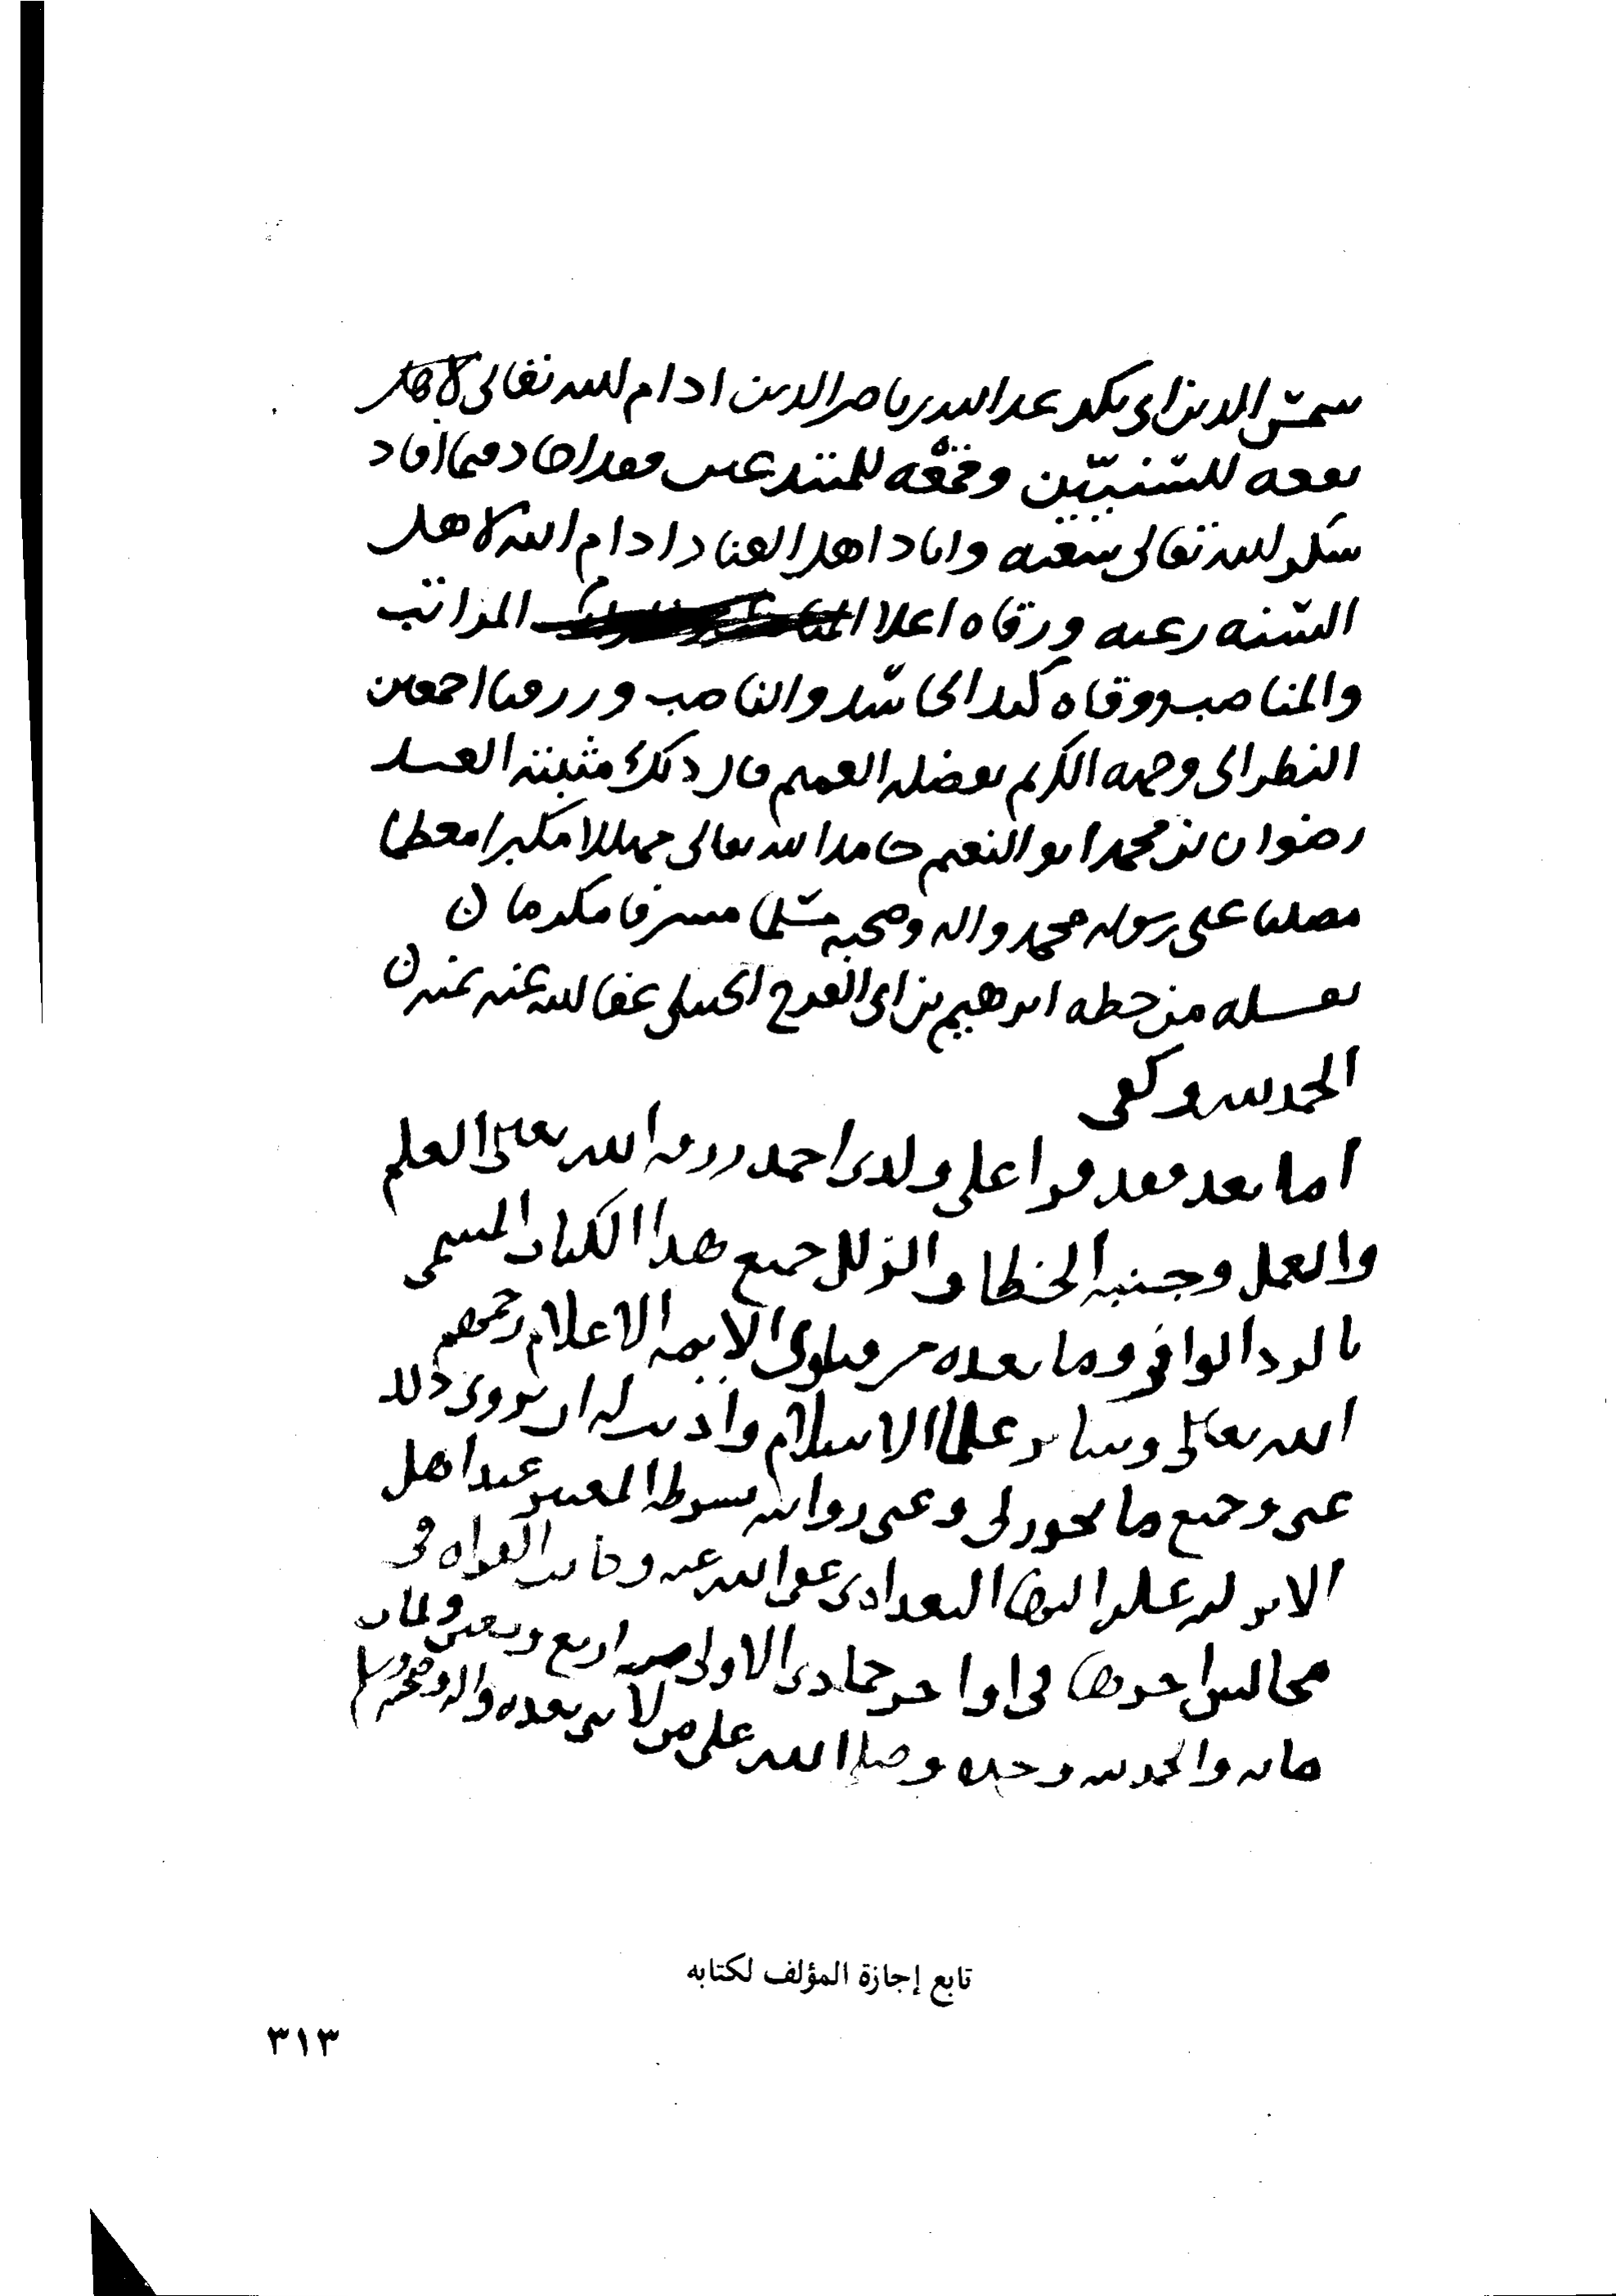 شمس الدين ابي بكر عبد الله بن ناصر الدين ادام الله تعالى لاهل
نفعه للسنيين وقمعه للمبتدعين فقد اجاد فيما افاد
شكر الله تعالى سعيه واباد اهل العناد ادام الله لاهل
السنه رعيه ورقاه اعلا المراتب
والمناصب ووقاه كيد الحاسد والناصب ورزقنا اجمعين
النظر الى وجهه الكريم بفضله العميم قال ذلك مثبته العبد
رضوان بن محمد ابو النعيم حامدا لله تعالى مهللا مكبرا معظما
مصليا على رسوله محمد واله وصحبه مسلما مشرفا مكرما
نقله من خطه ابرهيم بن ابي الفرج الحنبلي عفا الله عنه بمنه
الحمد لله وكفى
اما بعد فقد قرا علي ولدي احمد رزقه الله تعالى العلم
والعمل وجنبه الخطا والزلل جميع هذا الكتاب المسمى
بالرد الوافر وما بعده من فتاوى الايمه الاعلام رحمهم
الله تعالى وساير علما الاسلام واذنت له ان يروي ذلك
عني وجميع ما يجوز لي وعني روايته بشرطه المعتبر عند اهل
الاثر عفى الله عنه وكانت القراه في
مجالس اخرها في اواخر جمادى الاولى سنه اربع وثمان
مايه والحمد لله وحده وصلى الله على من لا نبي بعده واله وصحبه وسلم
تابع إجازة المؤلف لكتابه
٣١٣